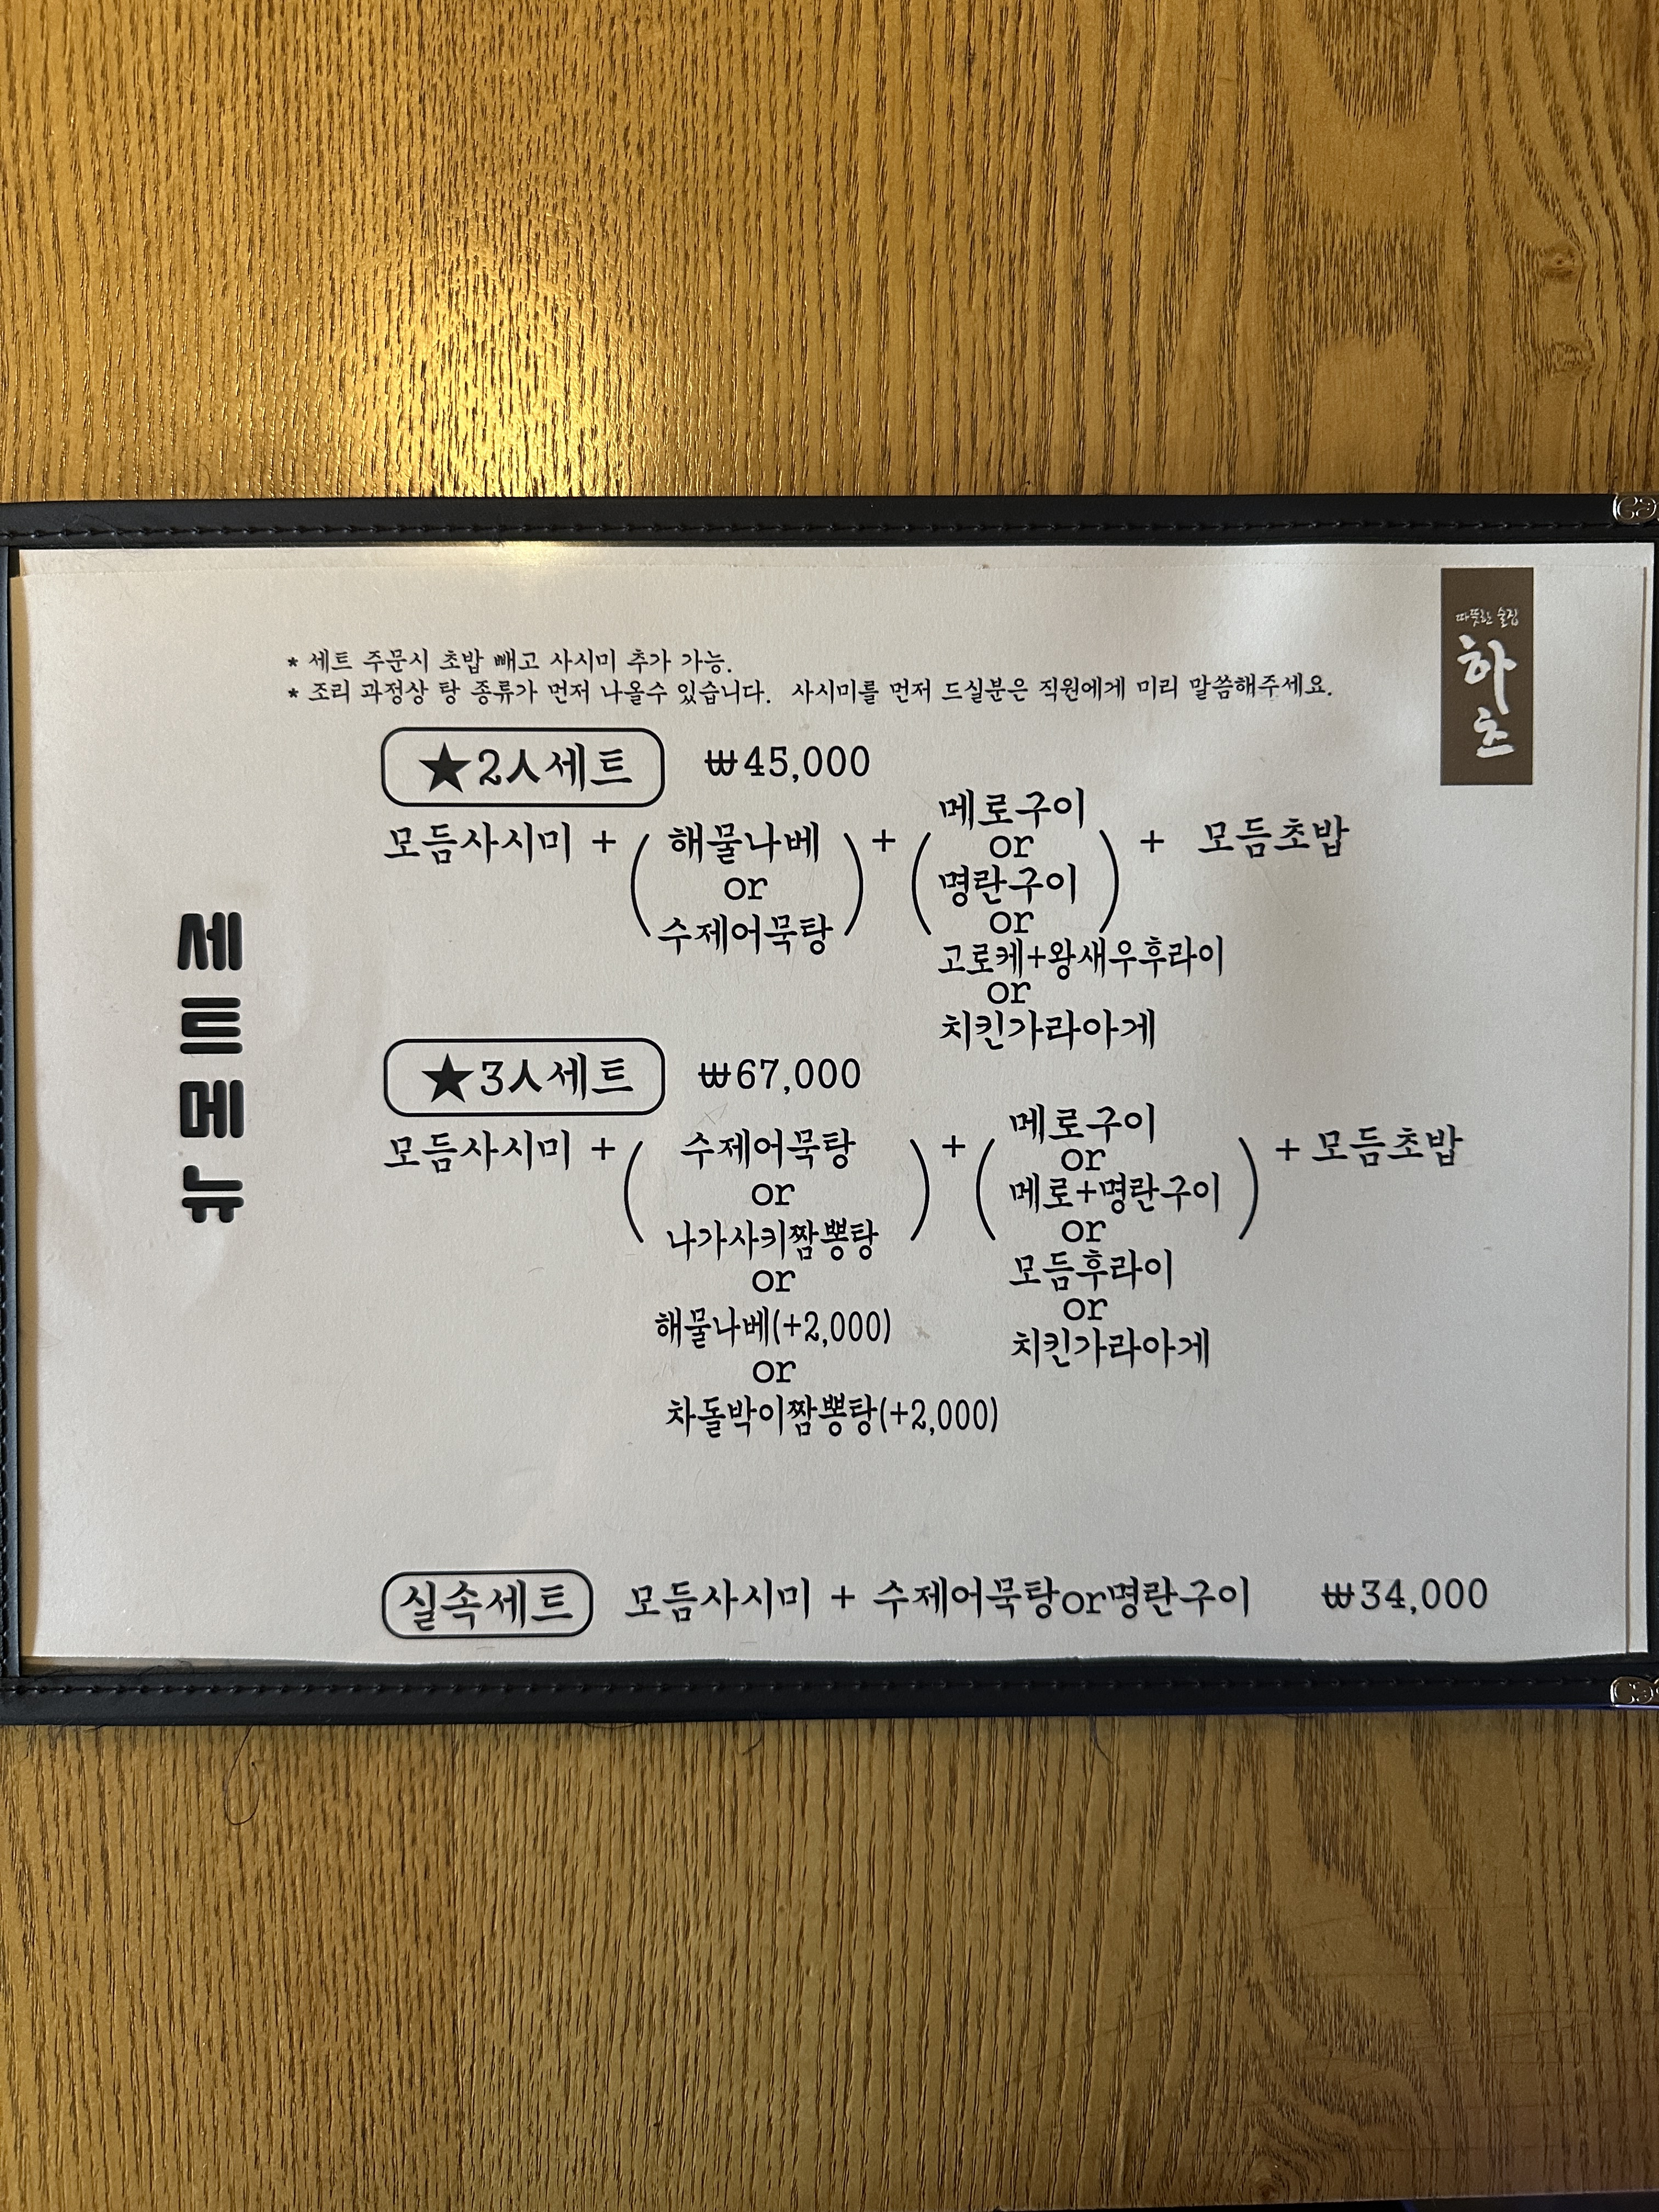 따뜻한 술집
하츠
* 세트 주문시 초밥 빼고 사시미 추가 가능.
* 조리 과정상 탕 종류가 먼저 나올수 있습니다. 사시미를 먼저 드실분은 직원에게 미리 말씀해주세요.
세트메뉴
★2人세트 ₩45,000
모듬사시미 + ( 해물나베 or 수제어묵탕 ) + ( 메로구이 or 명란구이 or 고로케+왕새우후라이 or 치킨가라아게 ) + 모듬초밥
★3人세트 ₩67,000
모듬사시미 + ( 수제어묵탕 or 나가사키짬뽕탕 or 해물나베(+2,000) or 차돌박이짬뽕탕(+2,000) ) + ( 메로구이 or 메로+명란구이 or 모듬후라이 or 치킨가라아게 ) + 모듬초밥
실속세트 모듬사시미 + 수제어묵탕or명란구이 ₩34,000